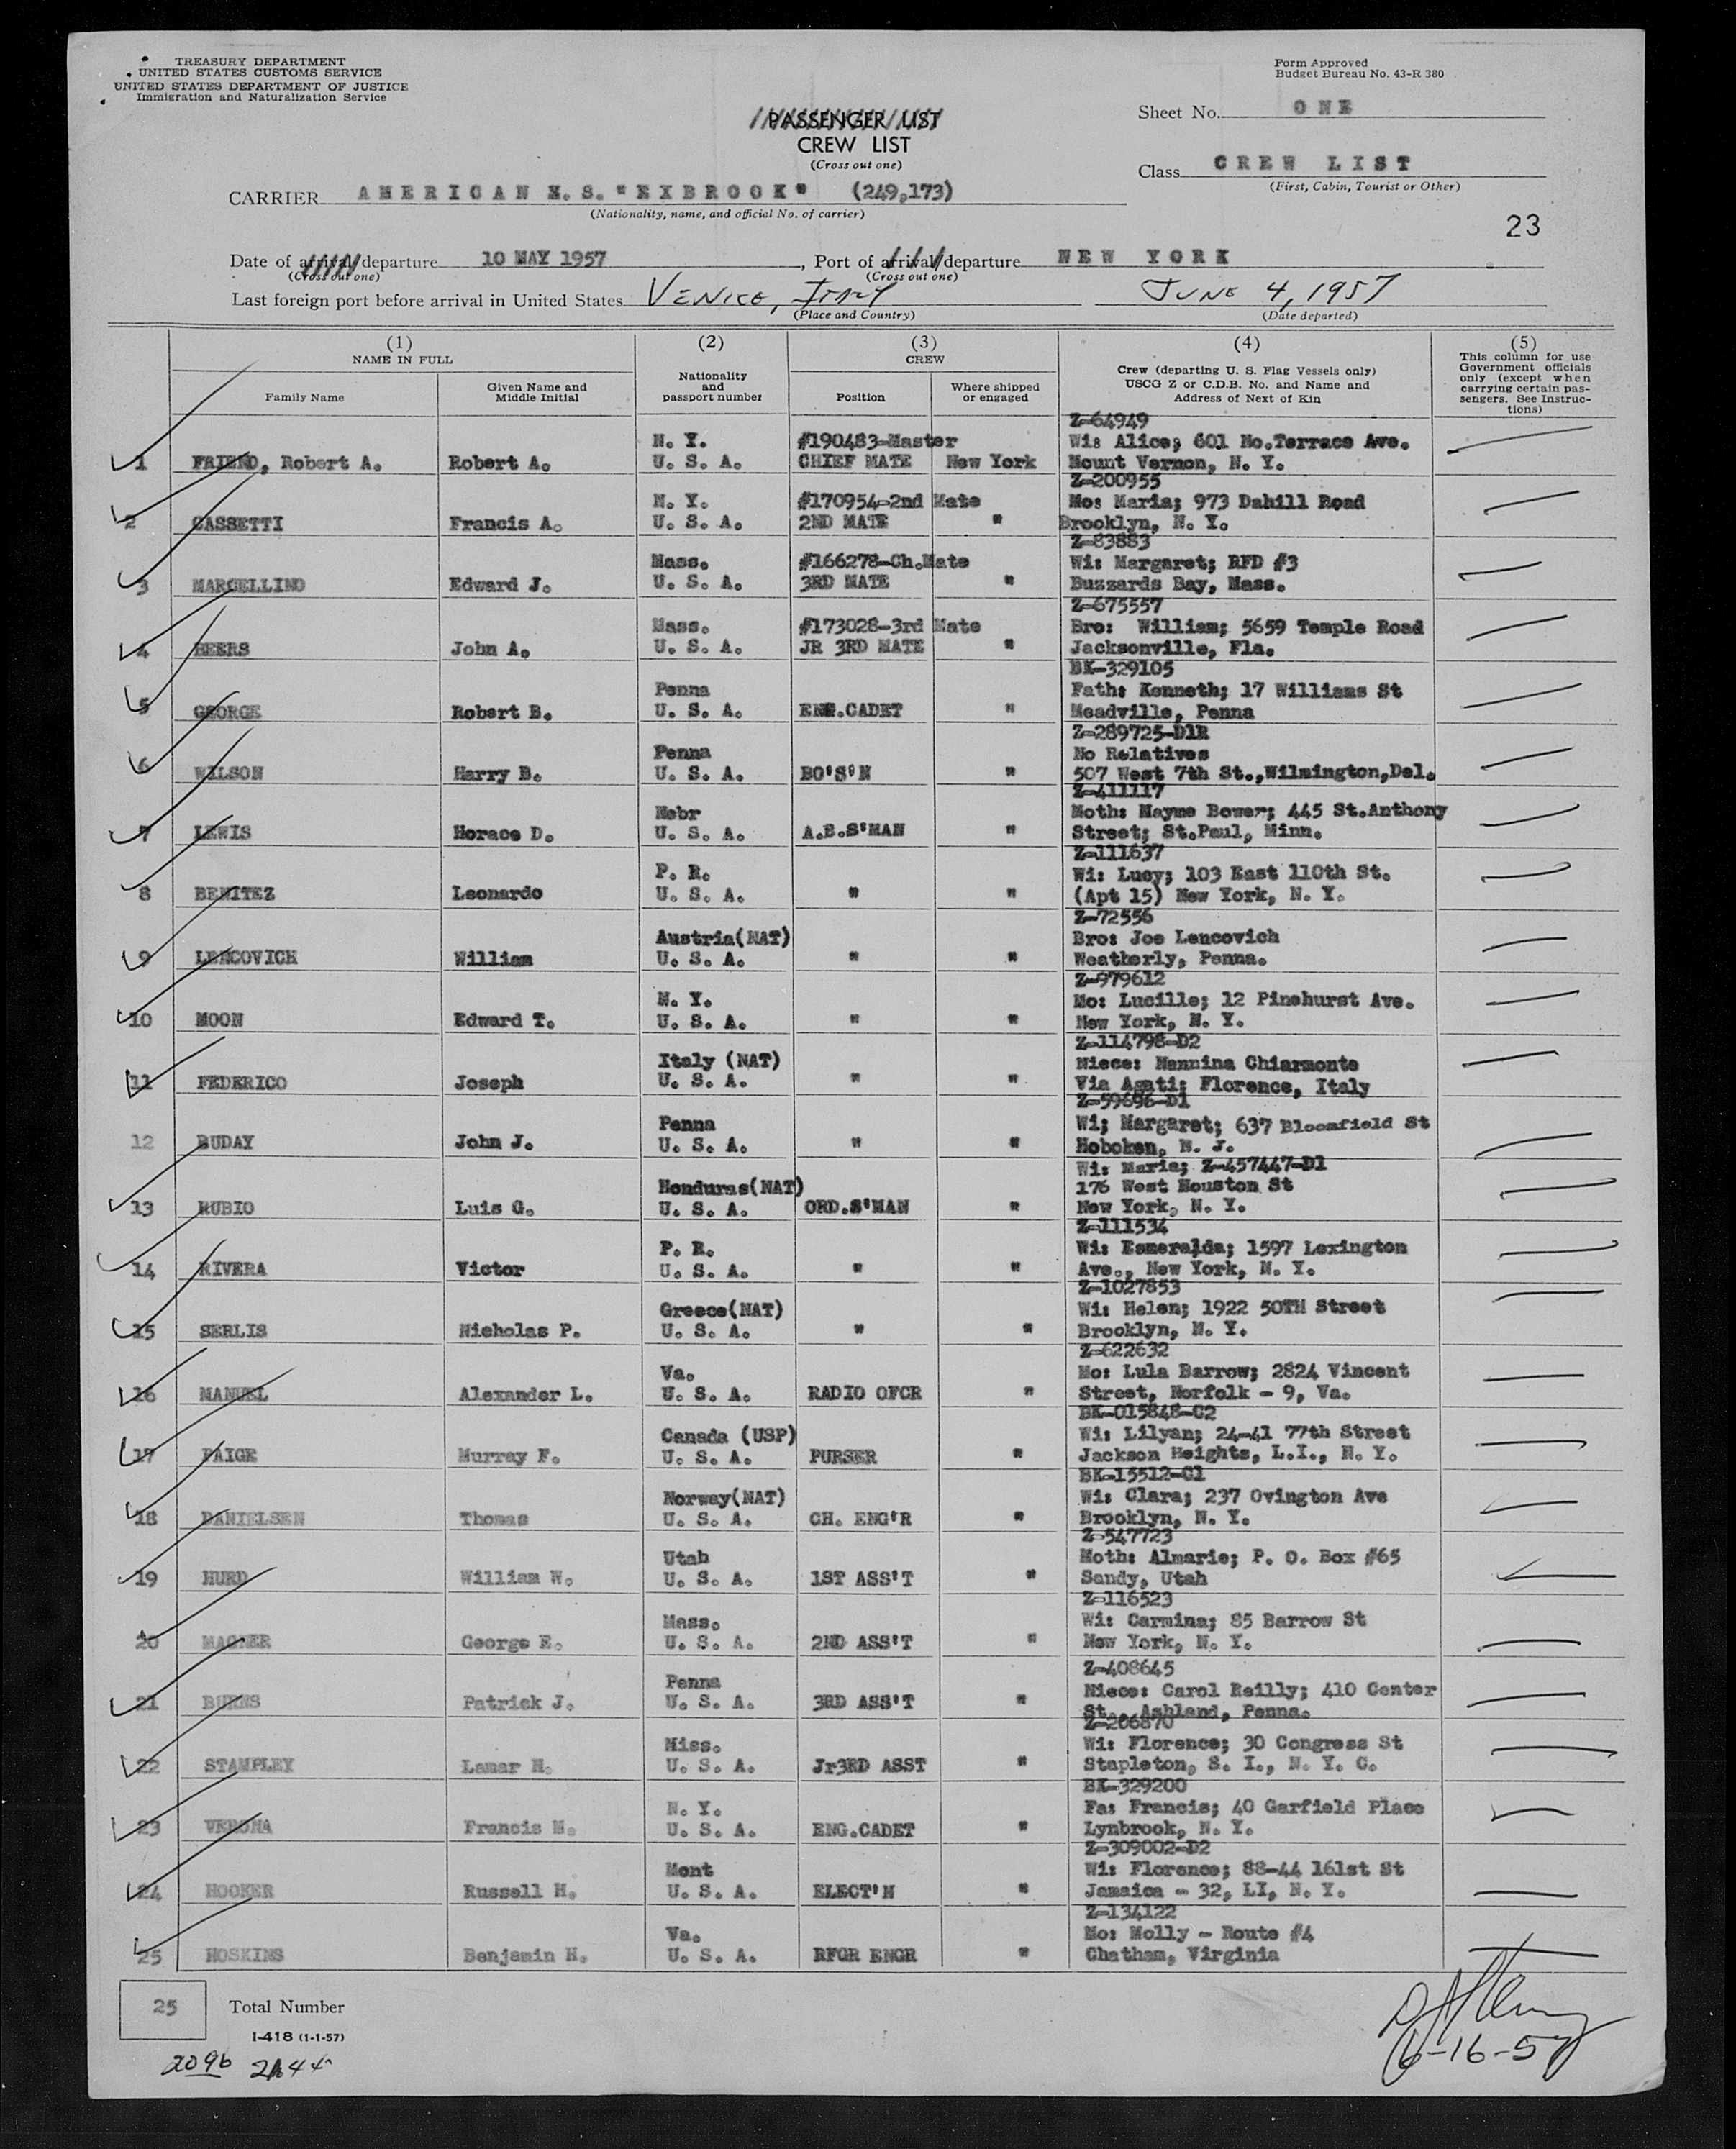 TREASURY DEPARTMENT
UNITED STATES CUSTOMS SERVICE
UNITED STATES DEPARTMENT OF JUSTICE
Immigration and Naturalization Service
Form Approved
Budget Bureau No. 43-R 380
Sheet No. ONE
PASSENGER LIST
CREW LIST
(Cross out one)
Class CREW LIST
(First, Cabin, Tourist or Other)
CARRIER AMERICAN S. S. "EXBROOK" (249,173)
(Nationality, name, and official No. of carrier)
23
Date of arrival/departure 10 MAY 1957, Port of arrival/departure NEW YORK
(Cross out one) (Cross out one)
Last foreign port before arrival in United States VENICE, ITALY JUNE 4, 1957
(Place and Country) (Date departed)
(1) (2) (3) (4) (5)
NAME IN FULL CREW
Family Name
Given Name and
Middle Initial
Nationality
and
passport number
Position
Where shipped
or engaged
Crew (departing U. S. Flag Vessels only)
USCG Z or C.D.B. No. and Name and
Address of Next of Kin
This column for use
Government officials
only (except when
carrying certain pas-
sengers. See Instruc-
tions)
Z-64949
N. Y. #190483-Master Wi: Alice; 601 No.Terrace Ave.
1 FRIEND, Robert A. Robert A. U. S. A. CHIEF MATE New York Mount Vernon, N. Y.
Z-200955
N. Y. #170954-2nd Mate Mo: Maria; 973 Dahill Road
2 CASSETTI Francis A. U. S. A. 2ND MATE " Brooklyn, N. Y.
Z-83883
Mass. #166278-Ch.Mate Wi: Margaret; RFD #3
3 MARCELLINO Edward J. U. S. A. 3RD MATE " Buzzards Bay, Mass.
Z-675557
Mass. #173028-3rd Mate Bro: William; 5659 Temple Road
4 BEERS John A. U. S. A. JR 3RD MATE " Jacksonville, Fla.
BK-329105
Penna Fath: Kenneth; 17 Williams St
5 GEORGE Robert B. U. S. A. ENG.CADET " Meadville, Penna
Z-289725-D1R
Penna No Relatives
6 WILSON Harry B. U. S. A. BO'S'N " 507 West 7th St.,Wilmington,Del.
Z-411117
Nebr Moth: Mayme Bower; 445 St.Anthony
7 LEWIS Horace D. U. S. A. A.B.S'MAN " Street; St.Paul, Minn.
Z-111637
P. R. Wi: Lucy; 103 East 110th St.
8 BENITEZ Leonardo U. S. A. " " (Apt 15) New York, N. Y.
Z-72556
Austria(NAT) Bro: Joe Lencovich
9 LENCOVICH William U. S. A. " " Weatherly, Penna.
Z-979612
N. Y. Mo: Lucille; 12 Pinehurst Ave.
10 MOON Edward T. U. S. A. " " New York, N. Y.
Z-114798-D2
Italy (NAT) Niece: Nannina Chiarmonte
11 FEDERICO Joseph U. S. A. " " Via Agati; Florence, Italy
Z-59696-D1
Penna Wi; Margaret; 637 Bloomfield St
12 BUDAY John J. U. S. A. " " Hoboken, N. J.
Wi: Maria; Z-457447-D1
Honduras(NAT) 176 West Houston St
13 RUBIO Luis G. U. S. A. ORD.S'MAN " New York, N. Y.
Z-111534
P. R. Wi: Esmeralda; 1597 Lexington
14 RIVERA Victor U. S. A. " " Ave., New York, N. Y.
Z-1027853
Greece(NAT) Wi: Helen; 1922 50TH Street
15 SERLIS Nicholas P. U. S. A. " " Brooklyn, N. Y.
Z-622632
Va. Mo: Lula Barrow; 2824 Vincent
16 MANUEL Alexander L. U. S. A. RADIO OFCR " Street, Norfolk - 9, Va.
BK-015848-C2
Canada (USP) Wi: Lilyan; 24-41 77th Street
17 PAIGE Murray F. U. S. A. PURSER " Jackson Heights, L.I., N. Y.
BK-15512-C1
Norway(NAT) Wi: Clara; 237 Ovington Ave
18 DANIELSEN Thomas U. S. A. CH. ENG'R " Brooklyn, N. Y.
Z-547723
Utah Moth: Almarie; P. O. Box #65
19 HURD William W. U. S. A. 1ST ASS'T " Sandy, Utah
Z-116523
Mass. Wi: Carmina; 85 Barrow St
20 MAGNER George E. U. S. A. 2ND ASS'T " New York, N. Y.
Z-408645
Penna Niece: Carol Reilly; 410 Center
21 BURNS Patrick J. U. S. A. 3RD ASS'T " St., Ashland, Penna.
Z-206870
Miss. Wi: Florence; 30 Congress St
22 STAMPLEY Lamar H. U. S. A. Jr3RD ASST " Stapleton, S. I., N. Y. C.
BK-329200
N. Y. Fa: Francis; 40 Garfield Place
23 VERONA Francis M. U. S. A. ENG.CADET " Lynbrook, N. Y.
Z-309002-D2
Mont Wi: Florence; 88-44 161st St
24 HOOKER Russell H. U. S. A. ELECT'N " Jamaica - 32, LI, N. Y.
Z-134122
Va. Mo: Molly - Route #4
25 HOSKINS Benjamin H. U. S. A. RFGR ENGR " Chatham, Virginia
25 Total Number
I-418 (1-1-57)
2096
6-16-57